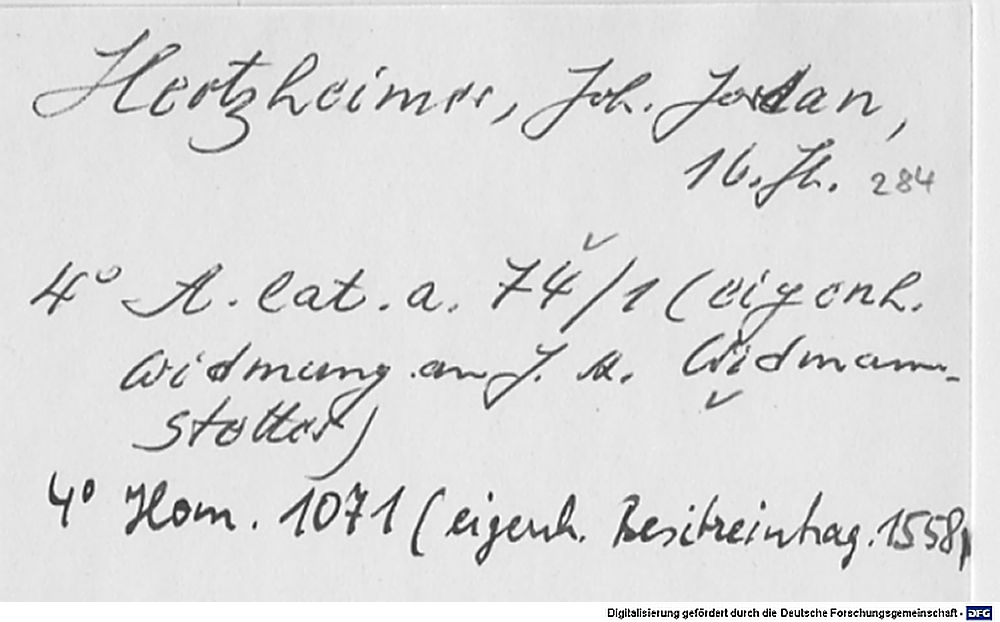 Hertzheimer, Joh. Jordan,
16. Jh. 284
4° A. lat. a. 74/1 (eigenh.
Widmung an J. A. Widmann-
stetter)
4° Hom. 1071 (eigenh. Besitzeintrag. 1558)
Digitalisierung gefördert durch die Deutsche Forschungsgemeinschaft - DFG